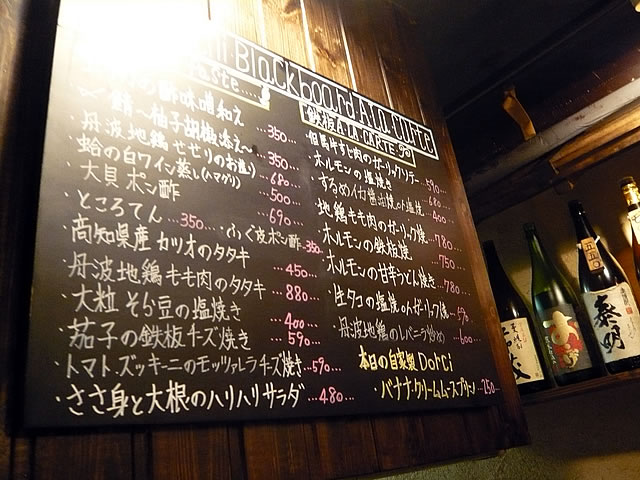 Blackboard A La Carte
酢味噌和え
鯖〜柚子胡椒添え〜 …350
丹波地鶏 せせりのお造り …350
蛤の白ワイン蒸し(ハマグリ) …680
大貝 ポン酢 …500
…690
・ところてん …350 ・ふぐ皮ポン酢 …350
・高知県産 カツオのタタキ
…450
・丹波地鶏 もも肉のタタキ …880
・大粒 そら豆の塩焼き …400
・茄子の鉄板チーズ焼き …590
・トマト、ズッキーニのモッツァレラチーズ焼き …590
・ささ身と大根のハリハリサラダ …480
鉄板 A LA CARTE
但馬牛すじ肉のガーリックソテー …590
ホルモンの塩焼き …680
するめイカ醤油焼 or 塩焼 …400
地鶏もも肉のガーリック焼 …780
ホルモンの鉄板焼 …750
ホルモンの甘辛うどん焼き …780
生タコの塩焼 or ガーリック焼
・丹波地鶏のレバニラ炒め …600
本日の自家製 Dorci
・バナナクリームムースプリン …250
泰明